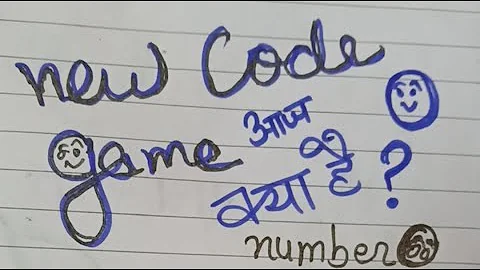 new Code
game आज
क्या है ?
number